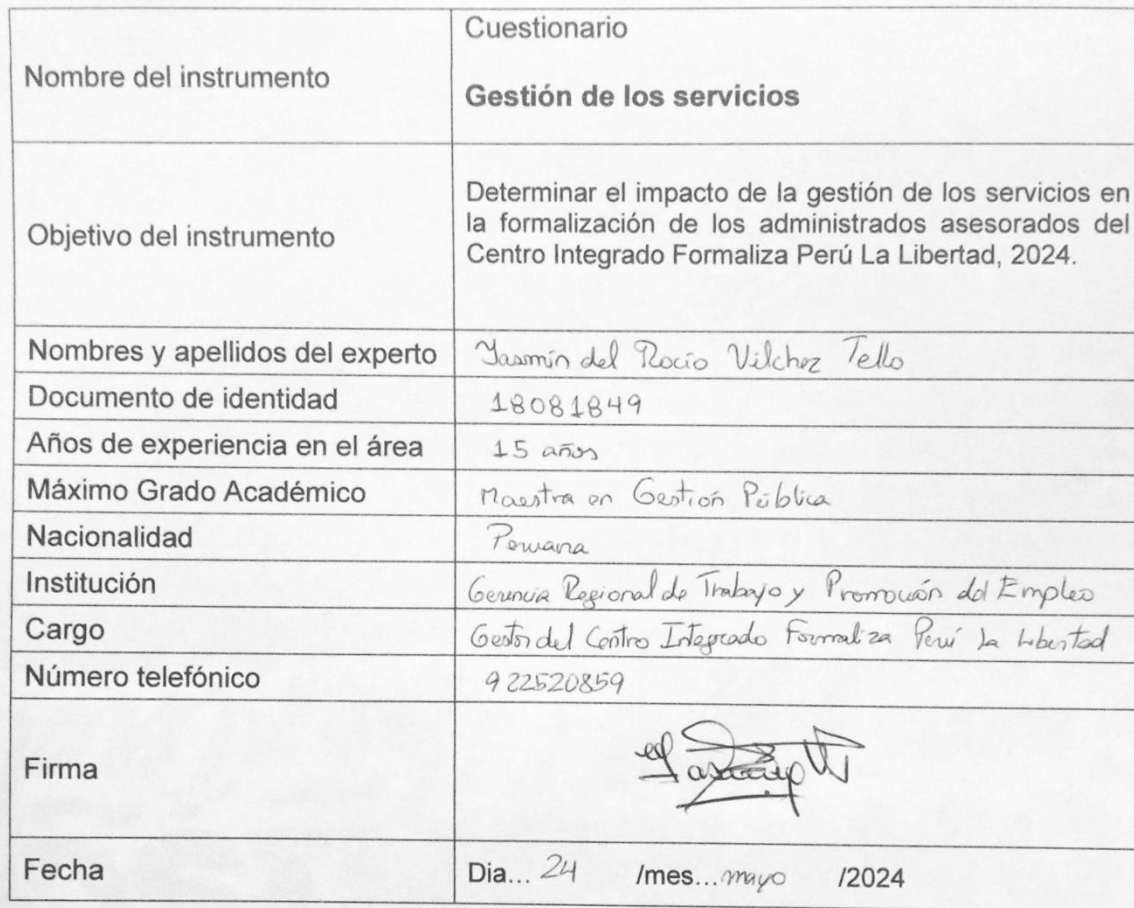 Nombre del instrumento
Cuestionario
Gestión de los servicios
Objetivo del instrumento
Determinar el impacto de la gestión de los servicios en
la formalización de los administrados asesorados del
Centro Integrado Formaliza Perú La Libertad, 2024.
Nombres y apellidos del experto Yasmín del Rocío Vilchez Tello
Documento de identidad 18081849
Años de experiencia en el área 15 años
Máximo Grado Académico Maestra en Gestión Pública
Nacionalidad Peruana
Institución Gerencia Regional de Trabajo y Promoción del Empleo
Cargo Gestor del Centro Integrado Formaliza Perú La Libertad
Número telefónico 922520859
Firma
Fecha Dia... 24 /mes... mayo /2024